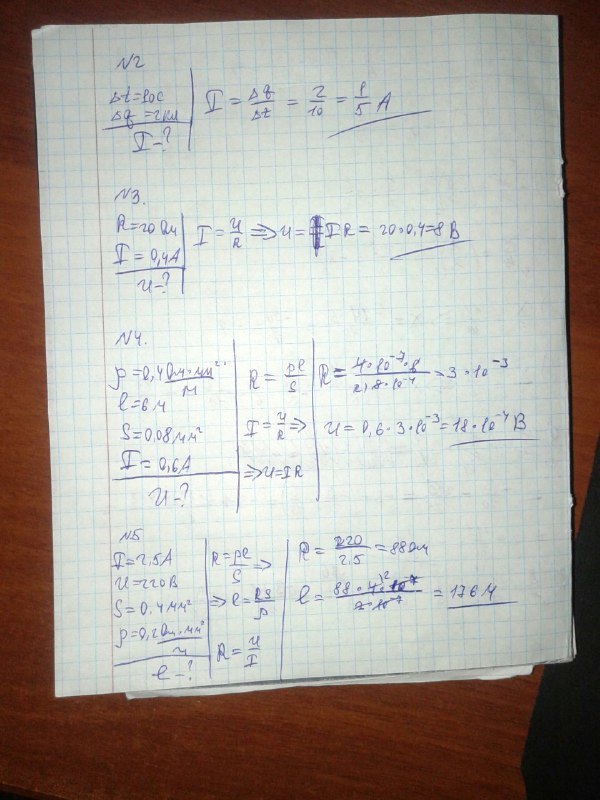 N2
Δt=10с
Δq=2Кл
I-?
I = Δq/Δt = 2/10 = 1/5 А
N3.
R=20 Ом
I=0,4А
U-?
I = U/R => U = IR = 20·0,4=8 В
N4.
ρ=0,4 Ом·мм²/м
l=6м
S=0,08мм²
I=0,6А
U-?
R = ρl/S
I = U/R =>
=> U=IR
= 3·10⁻³
U = 0,6·3·10⁻³ = 18·10⁻⁴ В
N5
I=2,5А
U=220В
S=0.4мм²
ρ=0,2 Ом·мм²/м
l-?
R = ρl/S =>
=> l = RS/ρ
R = U/I
R = 220/2.5 = 88 Ом
= 176 м